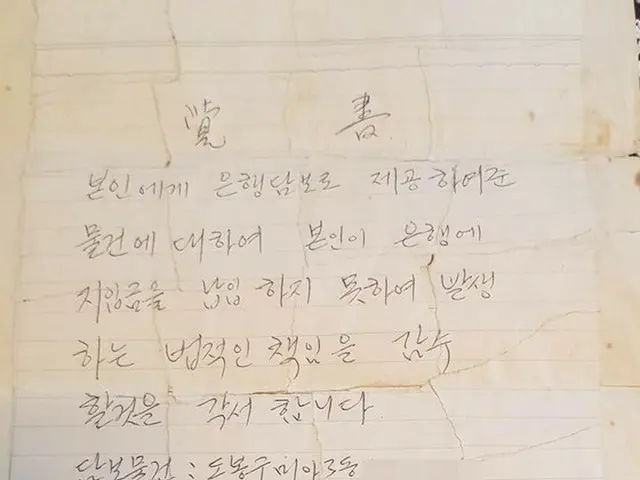 覚 書
본인에게 은행담보로 제공하여준
물건에 대하여 본인이 은행에
지입금을 납입 하지 못하여 발생
하는 법적인 책임을 감수
할것을 각서 합니다.
담보물건 : 도봉구 미아3동